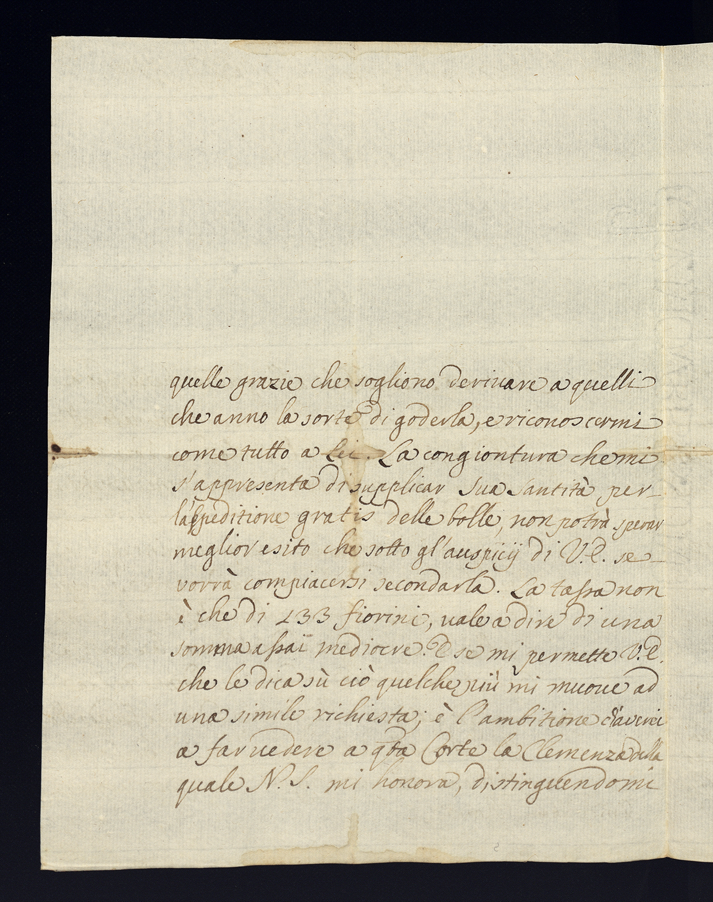 quelle grazie che sogliono derivare a quelli
che anno la sorte di goderla, e riconoscermi
come tutto a lei. La congiontura che mi
s'appresenta di supplicar Sua Santità per
l'espeditione gratis delle bolle, non potrà sperar
meglior esito che sotto gl'auspicij di V.E. se
vorrà compiacersi secondarla. La tassa non
è che di 133 fiorini, vale a dire di una
somma assai mediocre. E se mi permette V.E.
che le dica sù ciò quel che più mi muove ad
una simile richiesta; è l'ambitione d'averei
a far vedere a qta Corte la Clemenza della
quale N.S. mi honora, distinguendomi